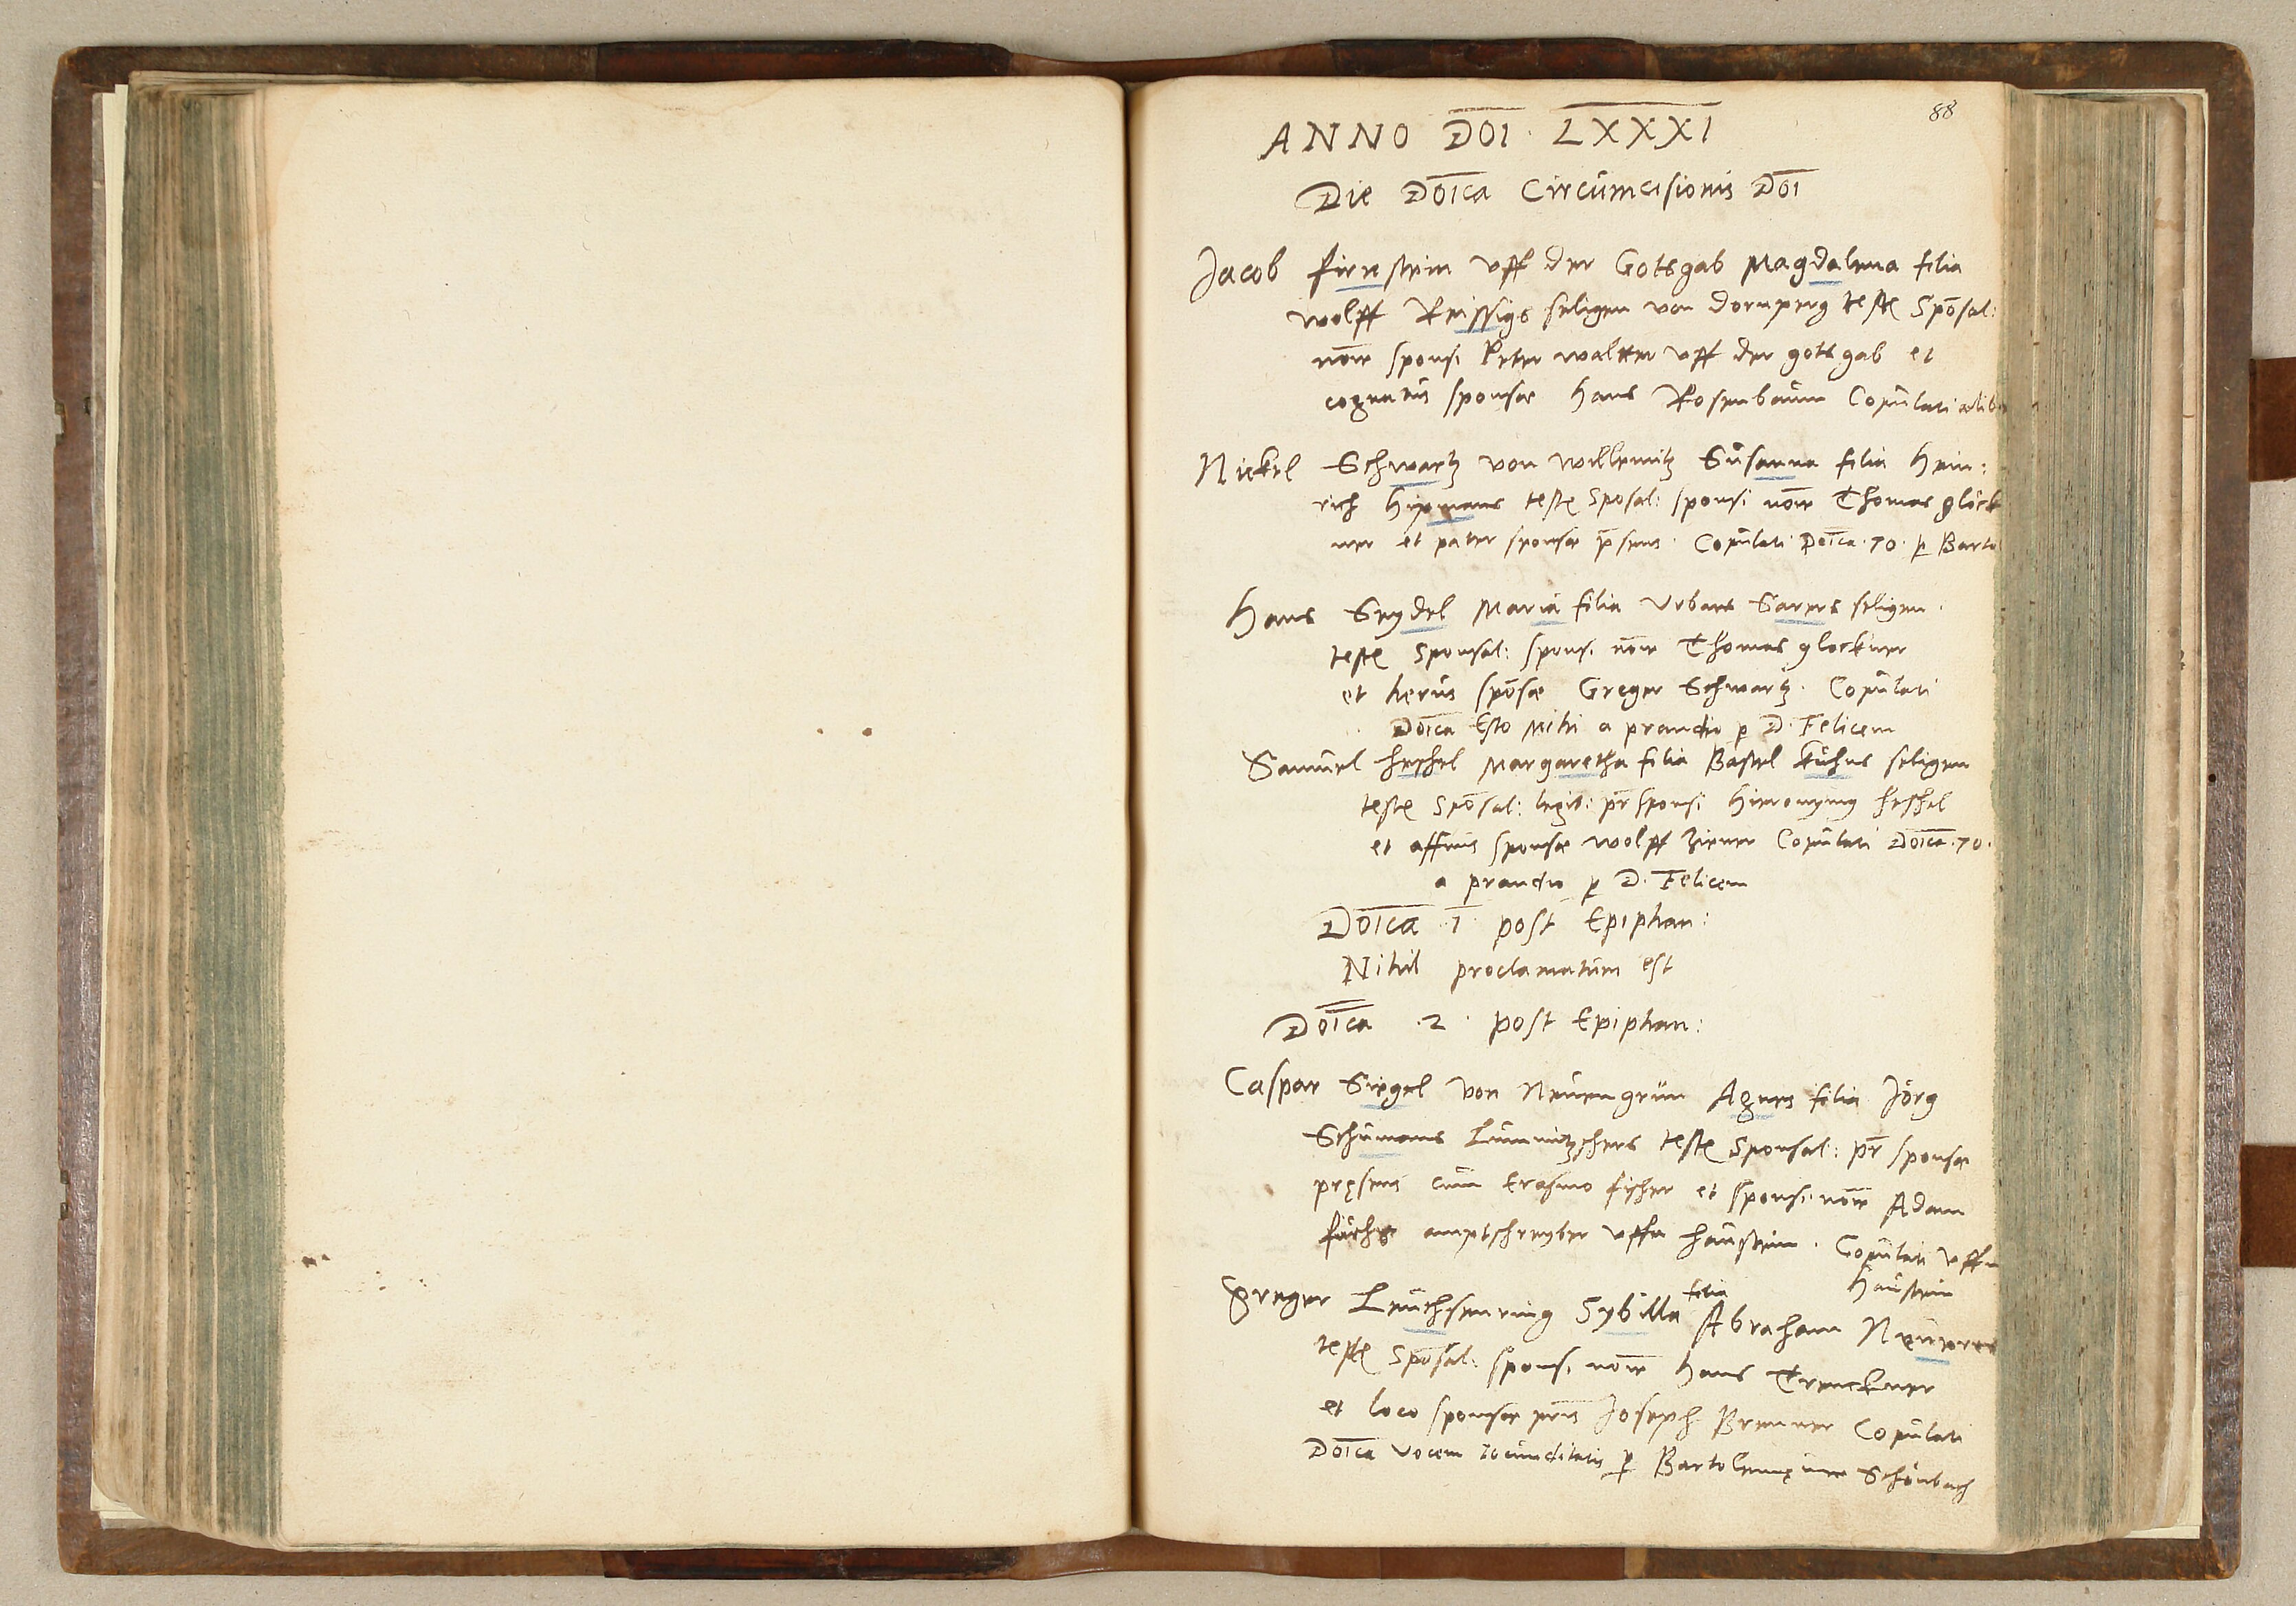 88
ANNO DOI · LXXXI
Die Doica Circumcisionis Doi
Jacob firnstein uff der Gotsgab Magdalena filia
wolff Reissigs seligen von dornperg testes Sposal:
noie sponsi Peter waltter uff der gotsgab et
cognatus sponsae Hans Rosenbaum Copulati alibi
Nickel Schwartz von willemitz Susanna filia Hein:
rich Hipmans testes Sposal: sponsi noie Thomas glöck
ner et pater sponsae psens · Copulati Doica · 70 · p Barto
Hans Seydel Maria filia Urbans Sarers seligen ·
testes Sponsal: sponsi noie Thomas glockner
et herus sposae Greger Schwartz · Copulati
Doica Esto Mihi a prandio p D · Felicem
Samuel heschel Margaretha filia Bastel kuhns seligen
testes Sposal: legit: pr sponsi Hieronymus heschel
et affinis sponsae wolff Ziener Copulati Doica · 70 ·
a prandio p D · Felicem
Doica 1 post Epiphan:
Nihil proclamatum est
Doica · 2 · post Epiphan:
Caspar Siegel von Neuengrün Agnes filia Jörg
Schumans testes Sponsal: pr sponsae
pręsens cum Erasmo fischer et sponsi noie Adam
fuchs amptschreyber uffn Haustein · Copulati uffn
Haustein
Greger Leuchsenring Sybilla filia Abraham
testes Sposal: sponsi noie Hans Trenckner
et loco sponsae pris Joseph Brenner Copulati
Doica vocem Iocunditatis p Bartolemęum Schönbach